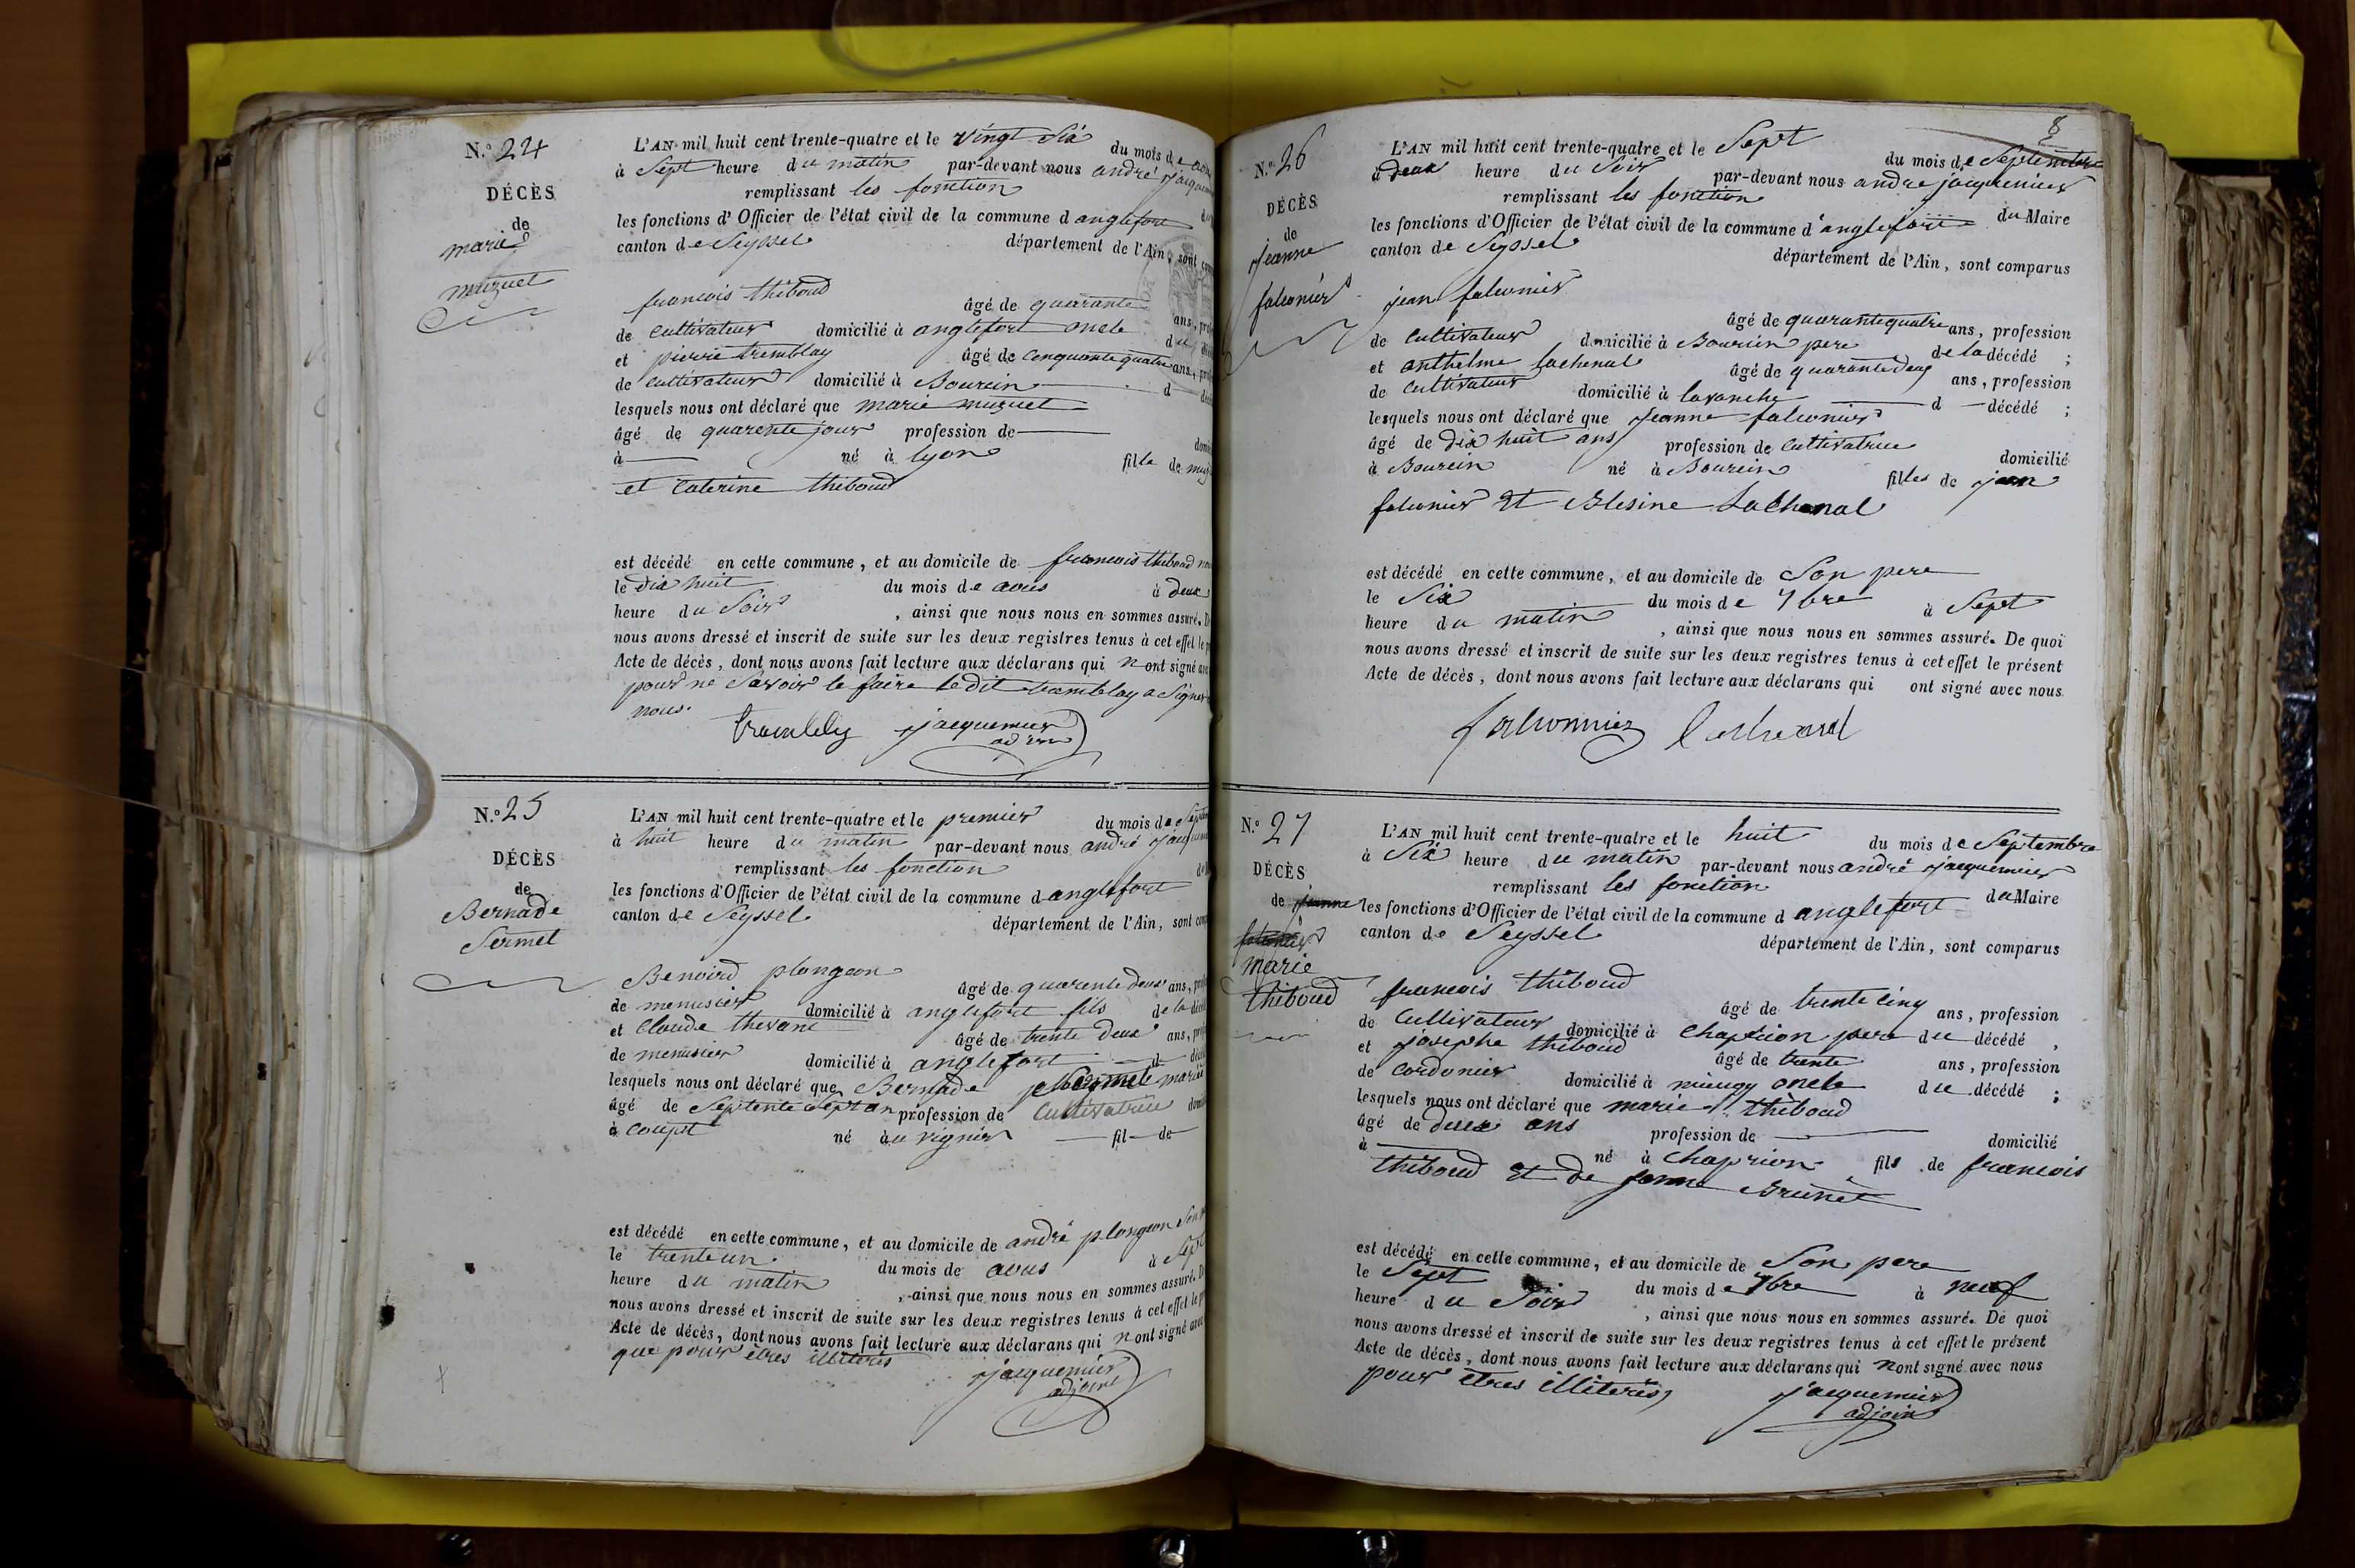 N.o 24
DÉCÈS
de
marie
muguet
L'AN mil huit cent trente-quatre et le vingt Six du mois de
à Sept heure du matin par-devant nous andré
remplissant les fonction
les fonctions d'Officier de l'état civil de la commune d anglefort
canton de Seyssel département de l'Ain, sont
francois thiboud âgé de quarante ans,
de cultivateur domicilié à anglefort oncle du
et pierre tremblay âgé de cenquante quatre ans,
de cultivateur domicilié à Bourcin d
lesquels nous ont déclaré que marie muguet
âgé de quarente jour profession de
à né à lyon fille de
et Caterine thiboud
est décédé en cette commune, et au domicile de francois thiboud
le dix huit du mois de aous à deux
heure du Soir, ainsi que nous nous en sommes assuré.
nous avons dressé et inscrit de suite sur les deux registres tenus à cet effet le
Acte de décès, dont nous avons fait lecture aux déclarans qui n ont signé
pour ne Savoir le faire le dit tramblay a Signer
nous.
trambley jacquemier
N.o 25
DÉCÈS
de
Bernade
Sermet
L'AN mil huit cent trente-quatre et le premier du mois de
à huit heure du matin par-devant nous andré
remplissant les fonction
les fonctions d'Officier de l'état civil de la commune d anglefort
canton de Seyssel département de l'Ain, sont
Benoird plongeon âgé de quarente deux ans,
de menusier domicilié à anglefort fils de la
et Claude thevant âgé de trente deux ans,
de menusier domicilié à anglefort d
lesquels nous ont déclaré que Bernade
âgé de Septente Sept an profession de Cultivatrice
à né au vignier fil de
est décédé en cette commune, et au domicile de andré plongeon Son
le trente un du mois de aous à Sept
heure du matin, ainsi que nous nous en sommes assuré.
nous avons dressé et inscrit de suite sur les deux registres tenus à cet effet le
Acte de décès, dont nous avons fait lecture aux déclarans qui n ont signé
que pour êtres illiterés
jacquemier
adjoint
8
N.o 26
DÉCÈS
de
Jeanne
falconier
L'AN mil huit cent trente-quatre et le Sept du mois de Septembre
à deux heure du Soir par-devant nous andre jacquemier
remplissant les fonction du Maire
les fonctions d'Officier de l'état civil de la commune d'anglefort
canton de Seyssel département de l'Ain, sont comparus
jean falconier âgé de quarante quatre ans, profession
de cultivateur domicilié à Bourcin pere de la décédé ;
et anthelme Lachenal âgé de quarante deux ans, profession
de Cultivateur domicilié à lavanche d décédé ;
lesquels nous ont déclaré que Jeanne falconier
âgé de dix huit ans profession de Cultivatrice domicilié
à Bourcin né à Bourcin filles de jean
falconier Et Blesine Lachenal
est décédé en cette commune, et au domicile de Son pere
le Six du mois de 7bre à Sept
heure du matin, ainsi que nous nous en sommes assuré. De quoi
nous avons dressé et inscrit de suite sur les deux registres tenus à cet effet le présent
Acte de décès, dont nous avons fait lecture aux déclarans qui ont signé avec nous
falconnier Lachenal
N.o 27
DÉCÈS
de jeanne
falconier
marie
thiboud
L'AN mil huit cent trente-quatre et le huit du mois de Septembre
à Six heure du matin par-devant nous andré jacquemier
remplissant les fonction du Maire
les fonctions d'Officier de l'état civil de la commune d anglefort
canton de Seyssel département de l'Ain, sont comparus
francois thiboud âgé de trente cinq ans, profession
de Cultivateur domicilié à Chaprion pere du décédé,
et josephe thiboud âgé de trente ans, profession
de Cordonier domicilié à mieugy oncle du décédé ;
lesquels nous ont déclaré que marie thiboud
âgé de deux ans profession de domicilié
à né à Chaprion fils de francois
thiboud Et de janne Brunet
est décédé en cette commune, et au domicile de Son pere
le Sept du mois de 7bre à neuf
heure du Soir, ainsi que nous nous en sommes assuré. De quoi
nous avons dressé et inscrit de suite sur les deux registres tenus à cet effet le présent
Acte de décès, dont nous avons fait lecture aux déclarans qui n ont signé avec nous
pour êtres illiterés,
jacquemier
adjoint